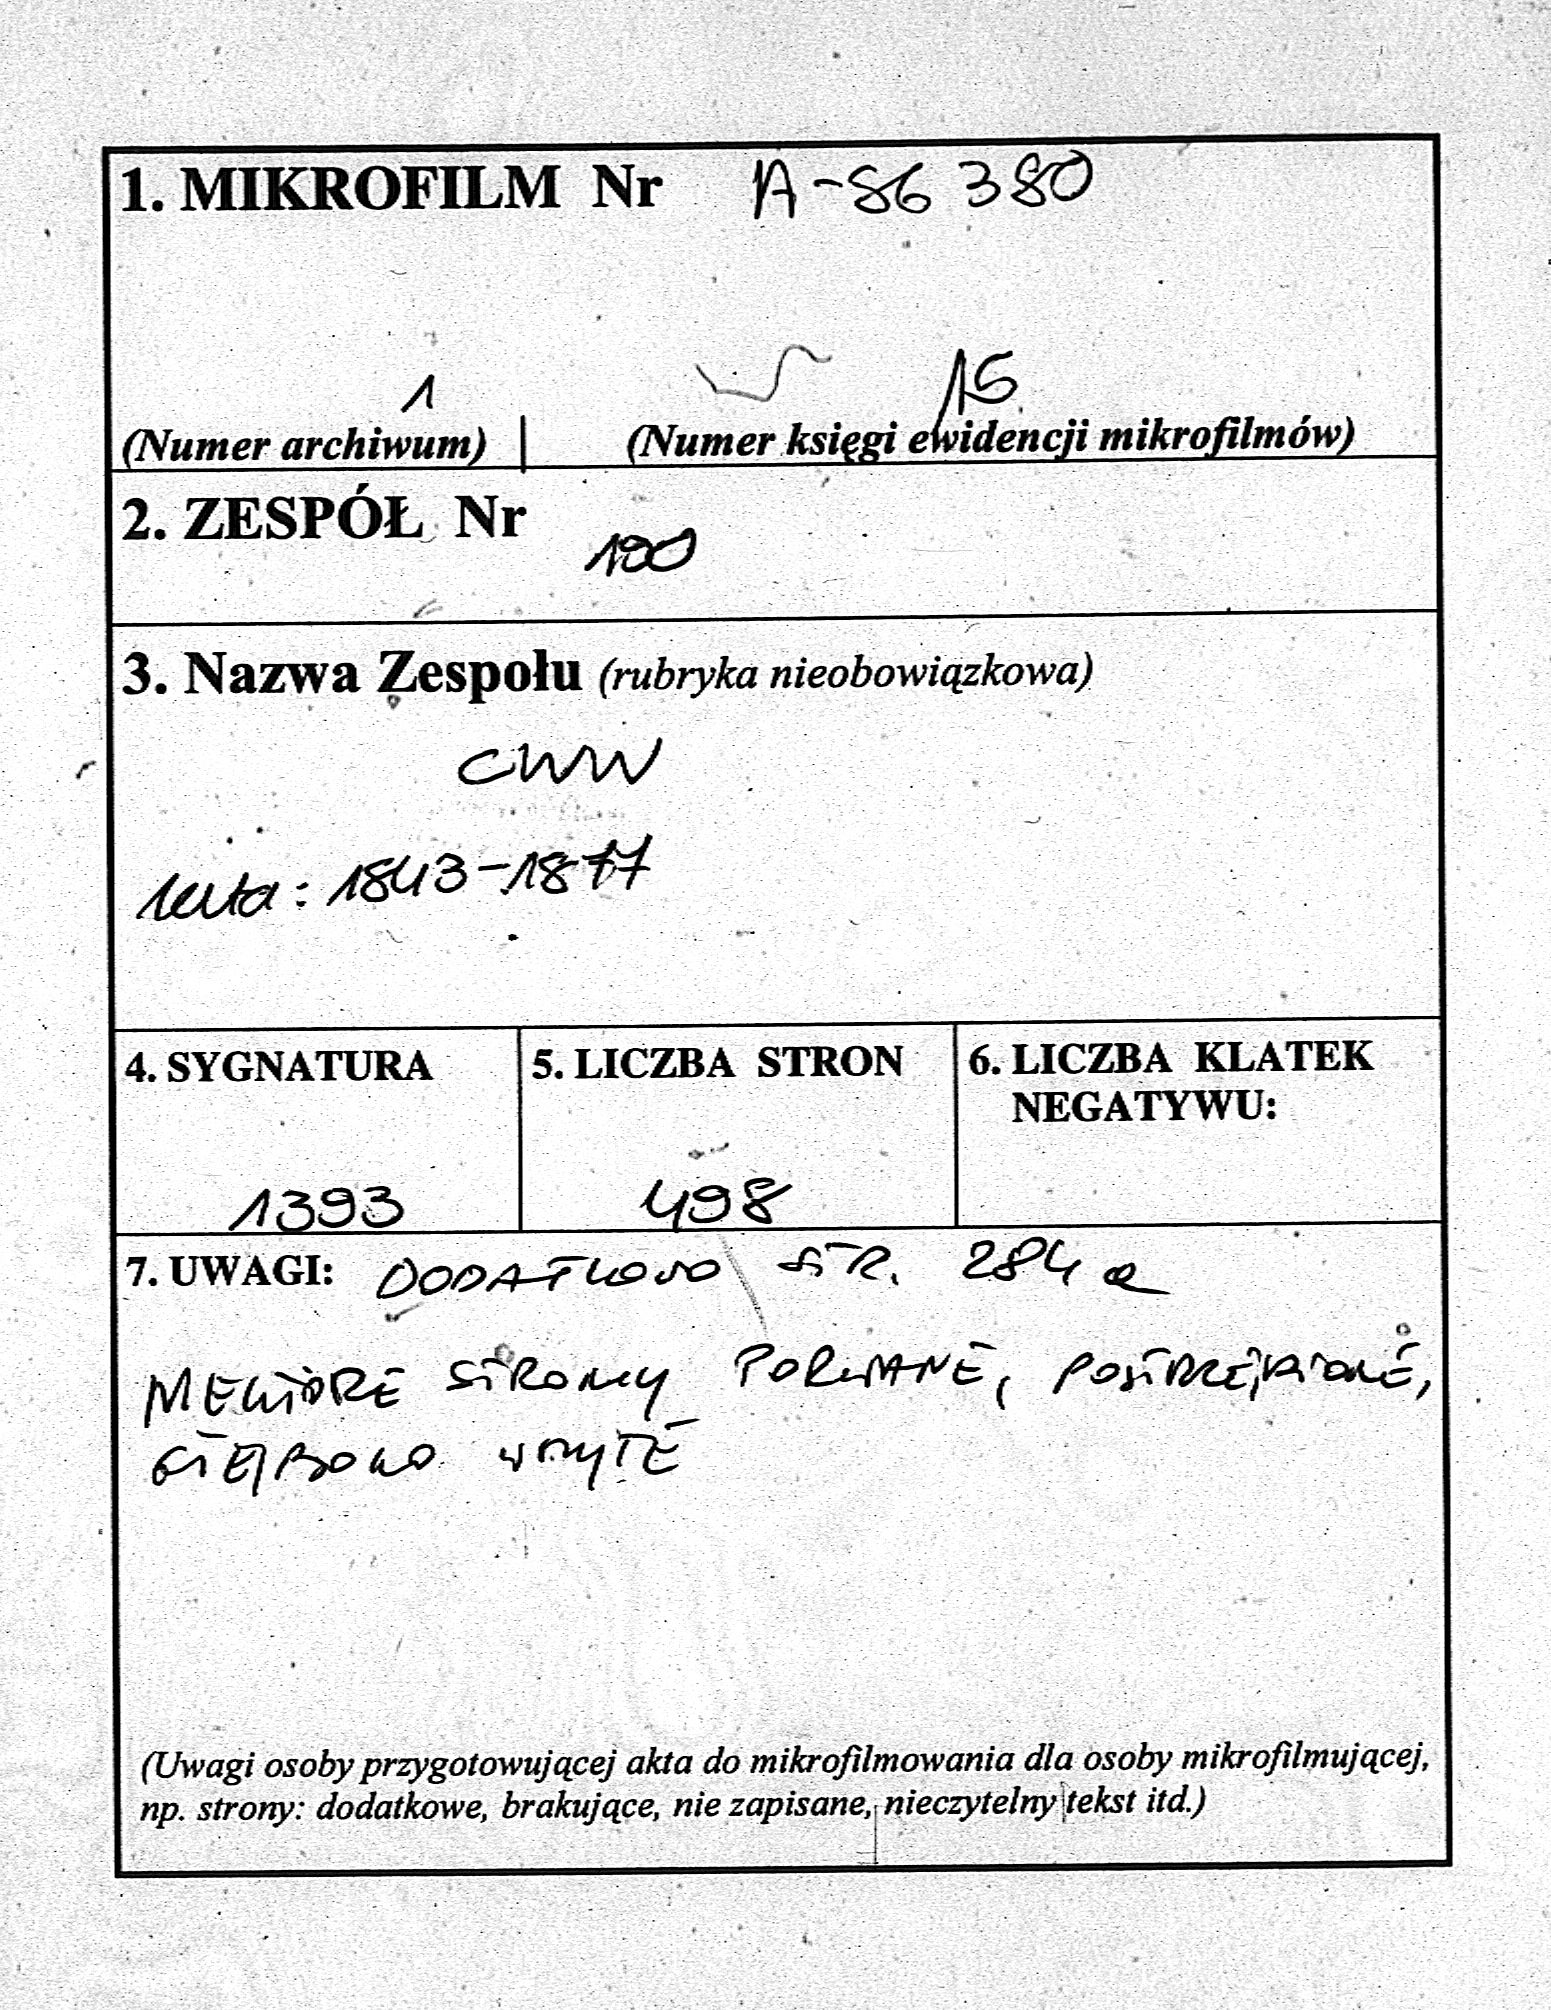 1. MIKROFILM Nr A-86 380
1 15
(Numer archiwum) (Numer księgi ewidencji mikrofilmów)
2. ZESPÓŁ Nr
100
3. Nazwa Zespołu (rubryka nieobowiązkowa)
CWW
: 1843-1877
4. SYGNATURA 5. LICZBA STRON 6. LICZBA KLATEK
NEGATYWU:
1393 498
7. UWAGI: DODATKOWO STR. 284a
NIEKTÓRE STRONY PORWANE, POSTRZĘPIONE,
GŁĘBOKO WSZYTE
(Uwagi osoby przygotowującej akta do mikrofilmowania dla osoby mikrofilmującej,
np. strony: dodatkowe, brakujące, nie zapisane, nieczytelny tekst itd.)